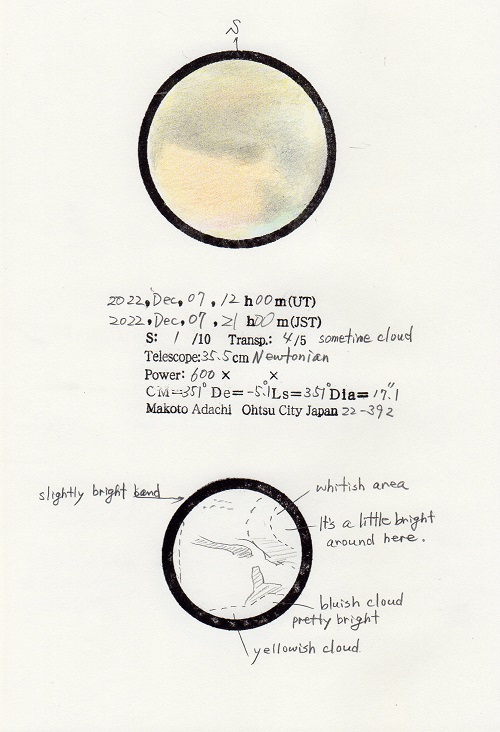 S
2022, Dec, 07, 12 h00m(UT)
2022, Dec, 07, 21 h00m(JST)
S: 1 /10 Transp.: 4/5 sometime cloud
Telescope: 35.5cm Newtonian
Power: 600 × ×
CM=351° De= -5.1° Ls= 351° Dia= 17.″1
Makoto Adachi Ohtsu City Japan 22-392
slightly bright band
whitish area
It's a little bright
around here.
bluish cloud
pretty bright
yellowish cloud